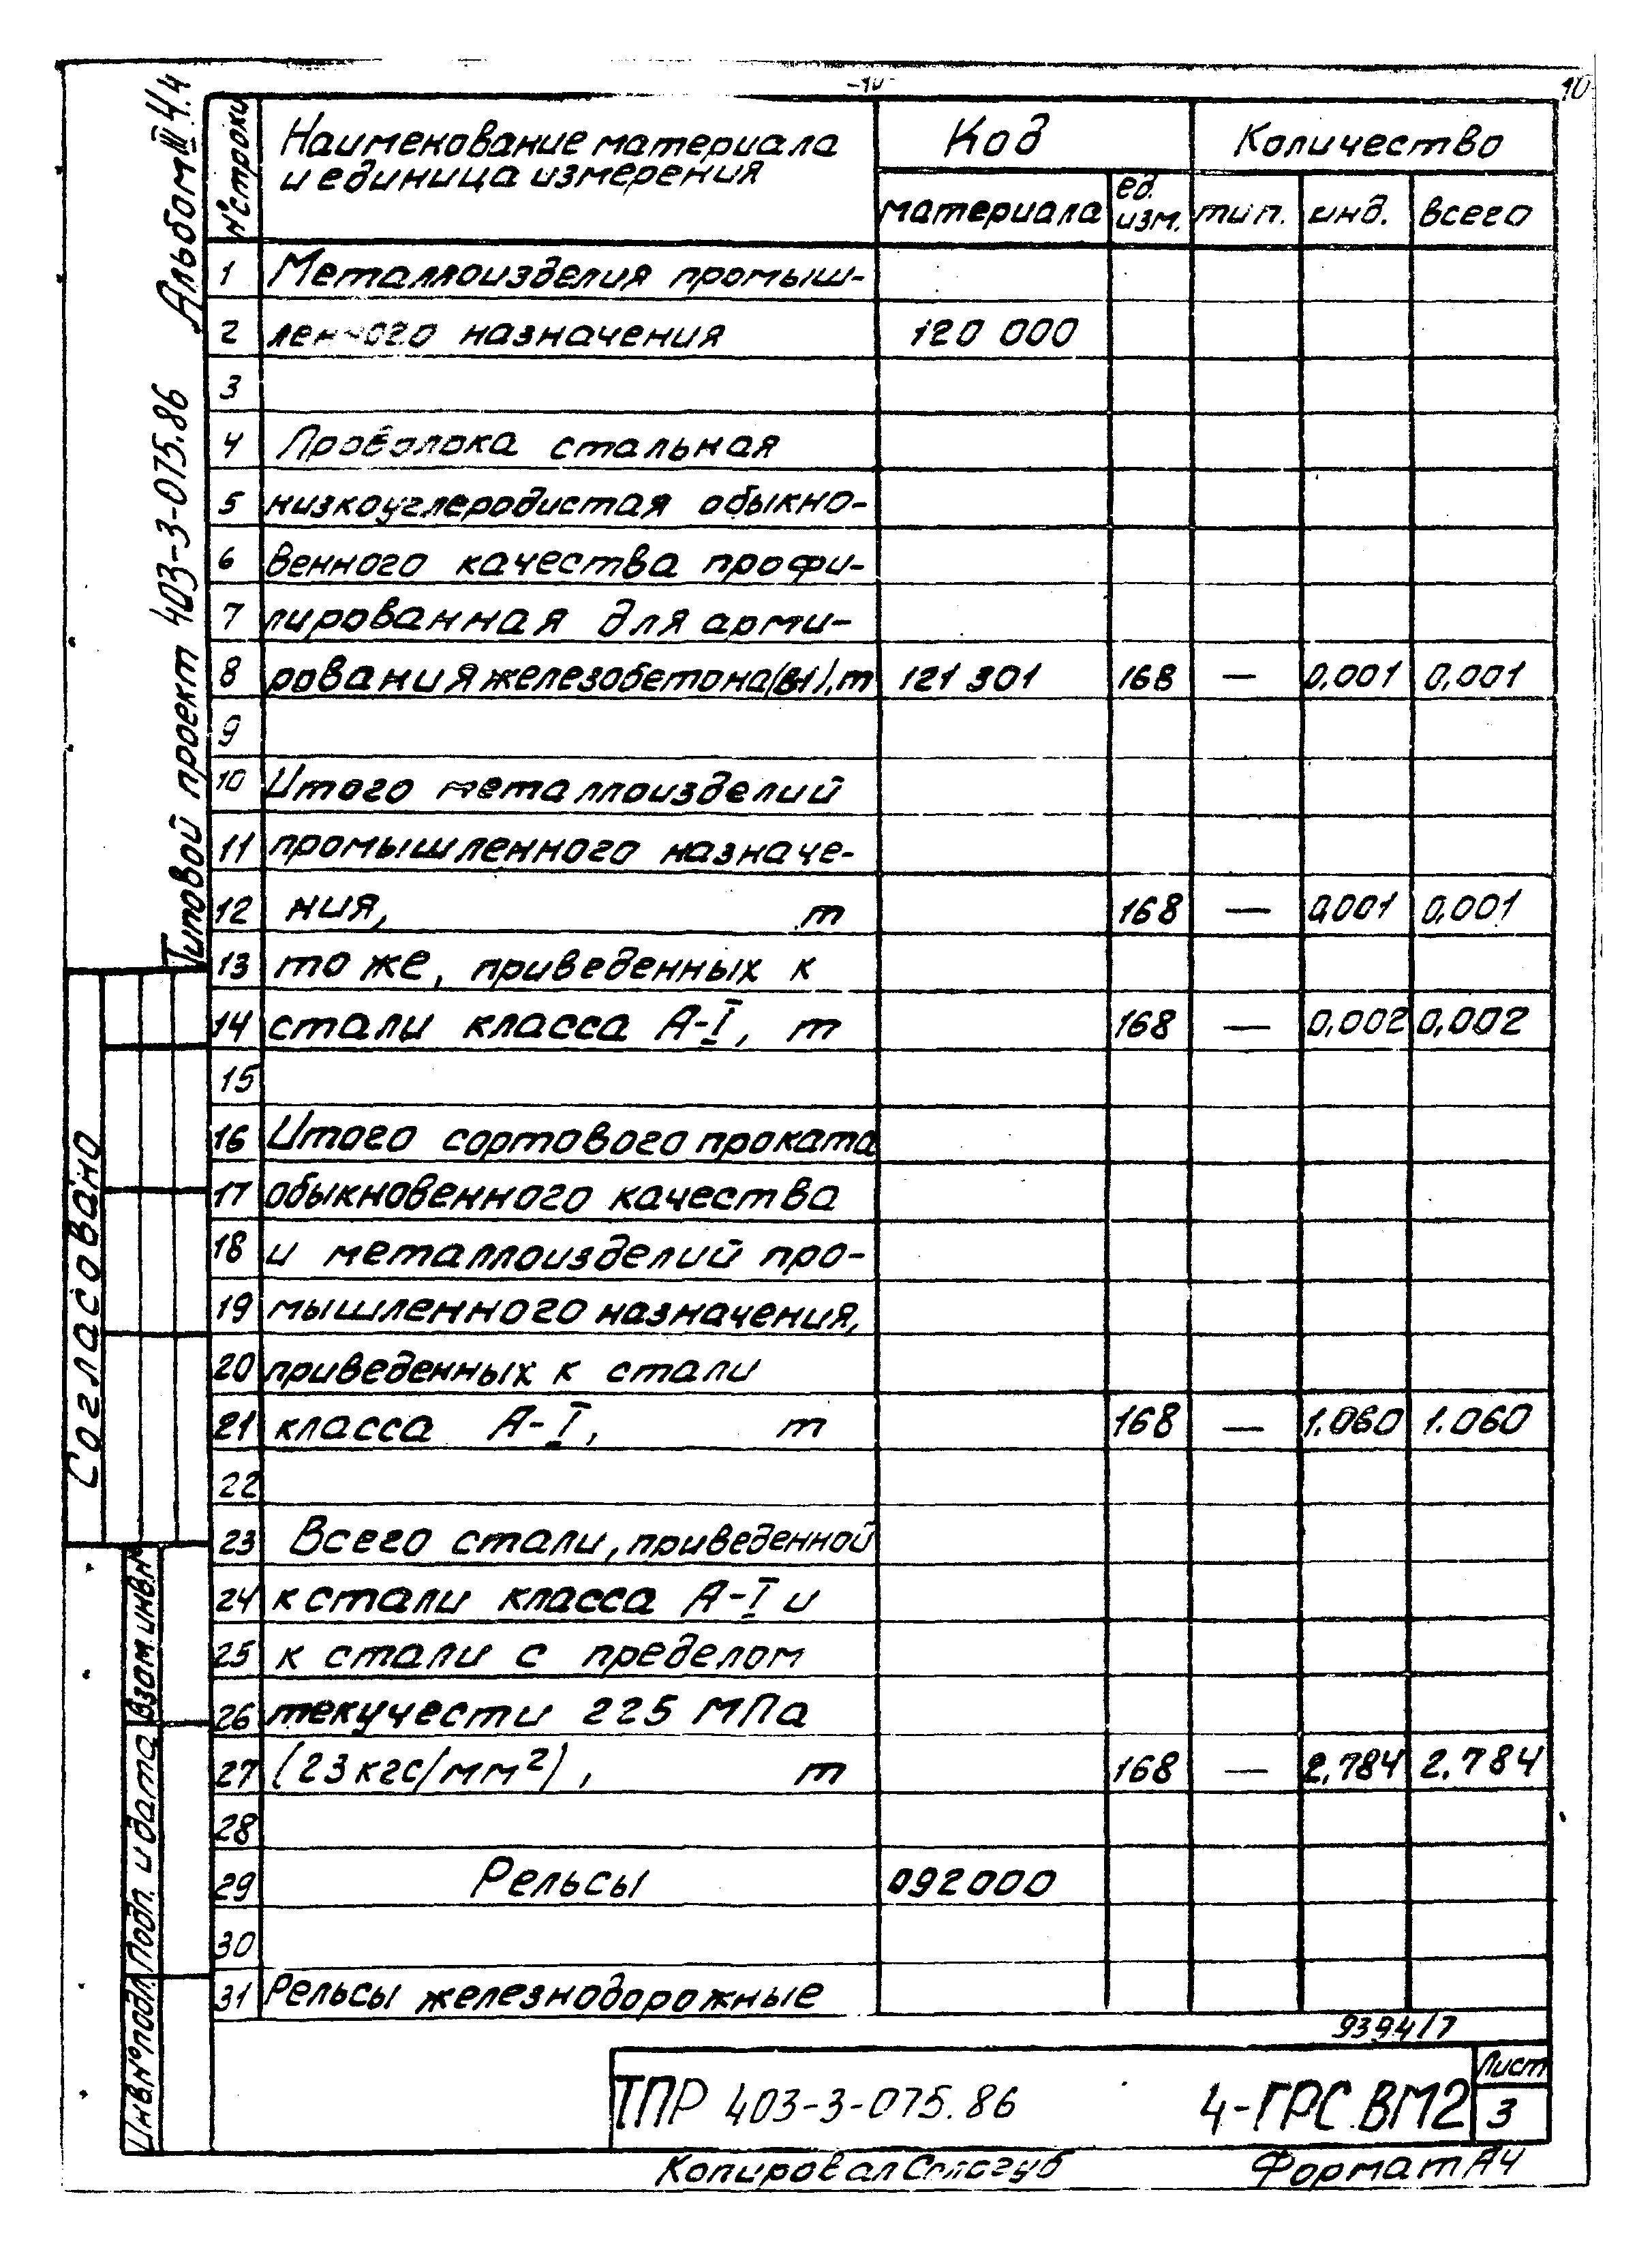 -10-
10
Альбом III 4.4
Типовой проект 403-3-075.86
Согласовано
Взам. инв. №
Подп. и дата
Инв. № подл.
№ строки
Наименование материала
и единица измерения
Код
Количество
материала
ед.
изм.
тип.
инд.
всего
1 Металлоизделия промыш-
2 ленного назначения 120 000
3
4 Проволока стальная
5 низкоуглеродистая обыкно-
6 венного качества профи-
7 лированная для арми-
8 рования железобетона (ВI), т 121 301 168 — 0,001 0,001
9
10 Итого металлоизделий
11 промышленного назначе-
12 ния, т 168 — 0,001 0,001
13 то же, приведенных к
14 стали класса А-I, т 168 — 0,002 0,002
15
16 Итого сортового проката
17 обыкновенного качества
18 и металлоизделий про-
19 мышленного назначения,
20 приведенных к стали
21 класса А-I, т 168 — 1.060 1.060
22
23 Всего стали, приведенной
24 к стали класса А-I и
25 к стали с пределом
26 текучести 225 МПа
27 (23 кгс/мм²), т 168 — 2,784 2,784
28
29 Рельсы 092000
30
31 Рельсы железнодорожные
9394/7
ТПР 403-3-075.86 4-ГРС.ВМ2
Лист
3
Копировал
Формат А4